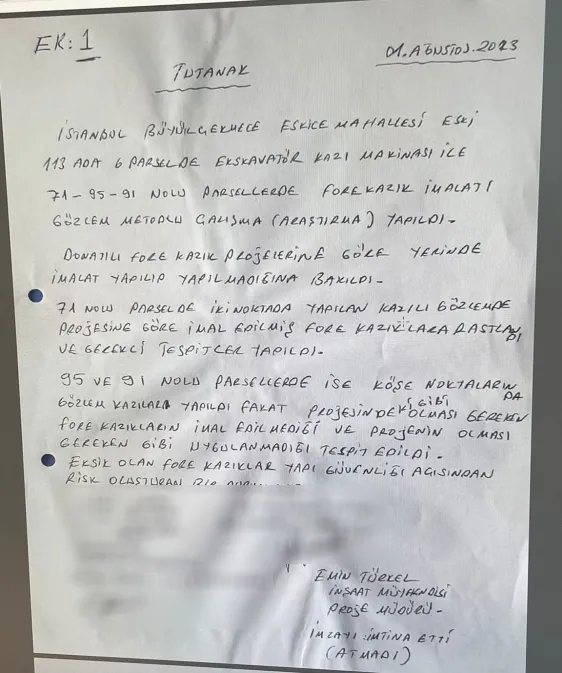 EK: 1
01.AĞUSTOS.2023
TUTANAK
İSTANBUL BÜYÜKÇEKMECE ESKİCE MAHALLESİ ESKİ
113 ADA 6 PARSELDE EKSKAVATÖR KAZI MAKİNASI İLE
71-95-91 NOLU PARSELLERDE FOREKAZIK İMALATI
GÖZLEM METODLU ÇALIŞMA (ARAŞTIRMA) YAPILDI.
DONATILI FORE KAZIK PROJELERİNE GÖRE YERİNDE
İMALAT YAPILIP YAPILMADIĞINA BAKILDI.
71 NOLU PARSELDE İKİ NOKTADA YAPILAN KAZILI GÖZLEMDE
PROJESİNE GÖRE İMAL EDİLMİŞ FORE KAZIKLARA RASTLANDI
VE GEREKLİ TESPİTLER YAPILDI.
95 VE 91 NOLU PARSELLERDE İSE KÖŞE NOKTALARINDA
GÖZLEM KAZILARI YAPILDI FAKAT PROJESİNDEKİ GİBİ OLMASI GEREKEN
FORE KAZIKLARIN İMAL EDİLMEDİĞİ VE PROJENİN OLMASI
GEREKEN GİBİ UYGULANMADIĞI TESPİT EDİLDİ.
EKSİK OLAN FORE KAZIKLAR YAPI GÜVENLİĞİ AÇISINDAN
RİSK OLUŞTURAN BİR
EMİN TÜRKEL
İNŞAAT MÜHENDİSİ
PROJE MÜDÜRÜ-
İMZAYI İMTİNA ETTİ
(ATMADI)